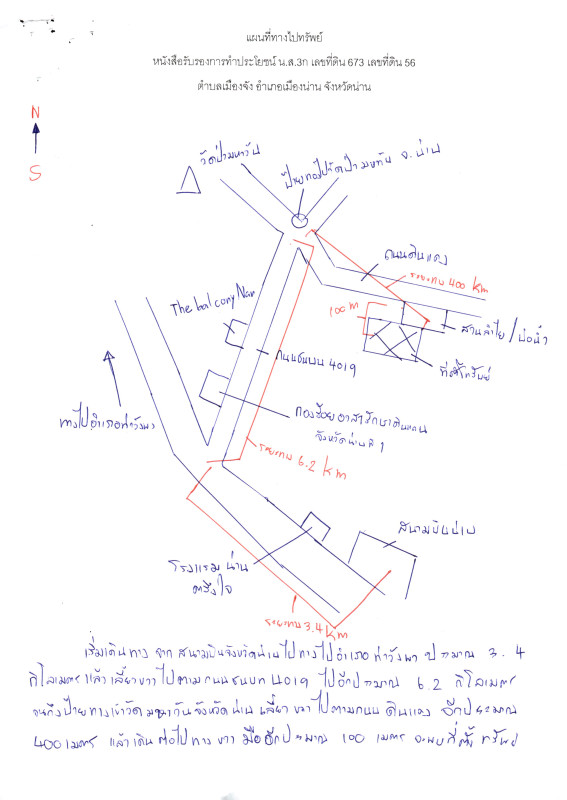 แผนที่ทางไปทรัพย์
หนังสือรับรองการทำประโยชน์ น.ส.3ก เลขที่ดิน 673 เลขที่ดิน 56
ตำบลเมืองจัง อำเภอเมืองน่าน จังหวัดน่าน
N
S
วัดป่ามหาวัน
ป้ายทางไปวัดป่ามหาวัน จ.น่าน
ถนนดินแดง
ระยะทาง 400 km
The balcony Nan
100 m
สวนลำไย/บ่อน้ำ
ที่ตั้งทรัพย์
ถนนชนบท 4019
ทางไปอำเภอท่าวังผา
กองร้อยอาสารักษาดินแดน
จังหวัดน่านที่ 1
ระยะทาง 6.2 km
สนามบินน่าน
โรงแรม น่าน
ตรึงใจ
ระยะทาง 3.4 km
เริ่มเดินทาง จาก สนามบินจังหวัดน่านไปทางไปอำเภอ ท่าวังผา ประมาณ 3.4
กิโลเมตร แล้ว เลี้ยวขวา ไปตามถนนชนบท 4019 ไปอีกประมาณ 6.2 กิโลเมตร
จนถึงป้ายทางเข้าวัด มหาวันจังหวัดน่าน เลี้ยว ขวา ไปตามถนน ดินแดง อีกประมาณ
400 เมตร แล้วเดิน ต่อไปทาง ขวา มืออีกประมาณ 100 เมตร จะพบที่ตั้ง ทรัพย์